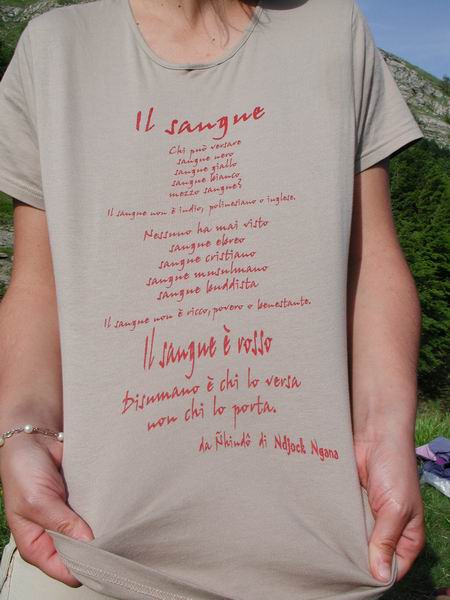 Il sangue
Chi può versare
sangue nero
sangue giallo
sangue bianco
mezzo sangue?
Il sangue non è indio, polinesiano o inglese.
Nessuno ha mai visto
sangue ebreo
sangue cristiano
sangue musulmano
sangue buddista
Il sangue non è ricco, povero o benestante.
Il sangue è rosso
Disumano è chi lo versa
non chi lo porta.
da Ñhindô di Ndjock Ngana